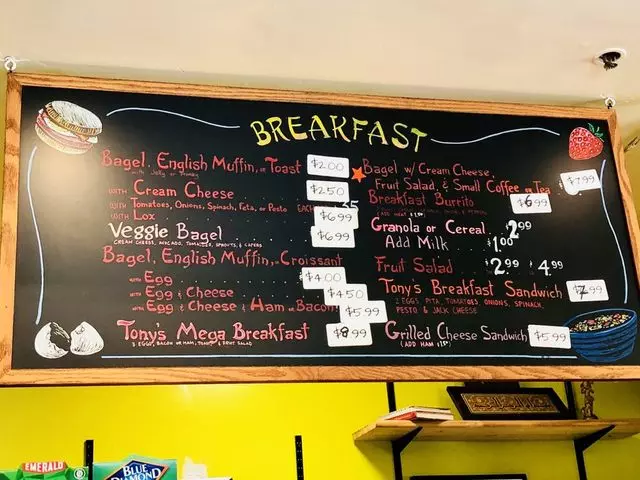 BREAKFAST
Bagel, English Muffin, or Toast $2.00
with Jelly or Honey
with Cream Cheese $2.50
with Tomatoes, Onions, Spinach, Feta, or Pesto EACH 35
with Lox $6.99
Veggie Bagel $6.99
CREAM CHEESE, AVOCADO, TOMATOES, SPROUTS, & CAPERS
Bagel, English Muffin, or Croissant
with Egg $4.00
with Egg & Cheese $4.50
with Egg & Cheese & Ham or Bacon $5.99
Tony's Mega Breakfast $8.99
3 EGGS, BACON OR HAM, TOAST & FRUIT SALAD
Bagel w/ Cream Cheese,
Fruit Salad, & Small Coffee or Tea $7.99
Breakfast Burrito $6.99
Granola or Cereal $2.99
Add Milk $1.00
Fruit Salad $2.99 $4.99
Tony's Breakfast Sandwich $7.99
2 EGGS, PITA, TOMATOES, ONIONS, SPINACH,
PESTO & JACK CHEESE
Grilled Cheese Sandwich $5.99
EMERALD
BLUE
DIAMOND